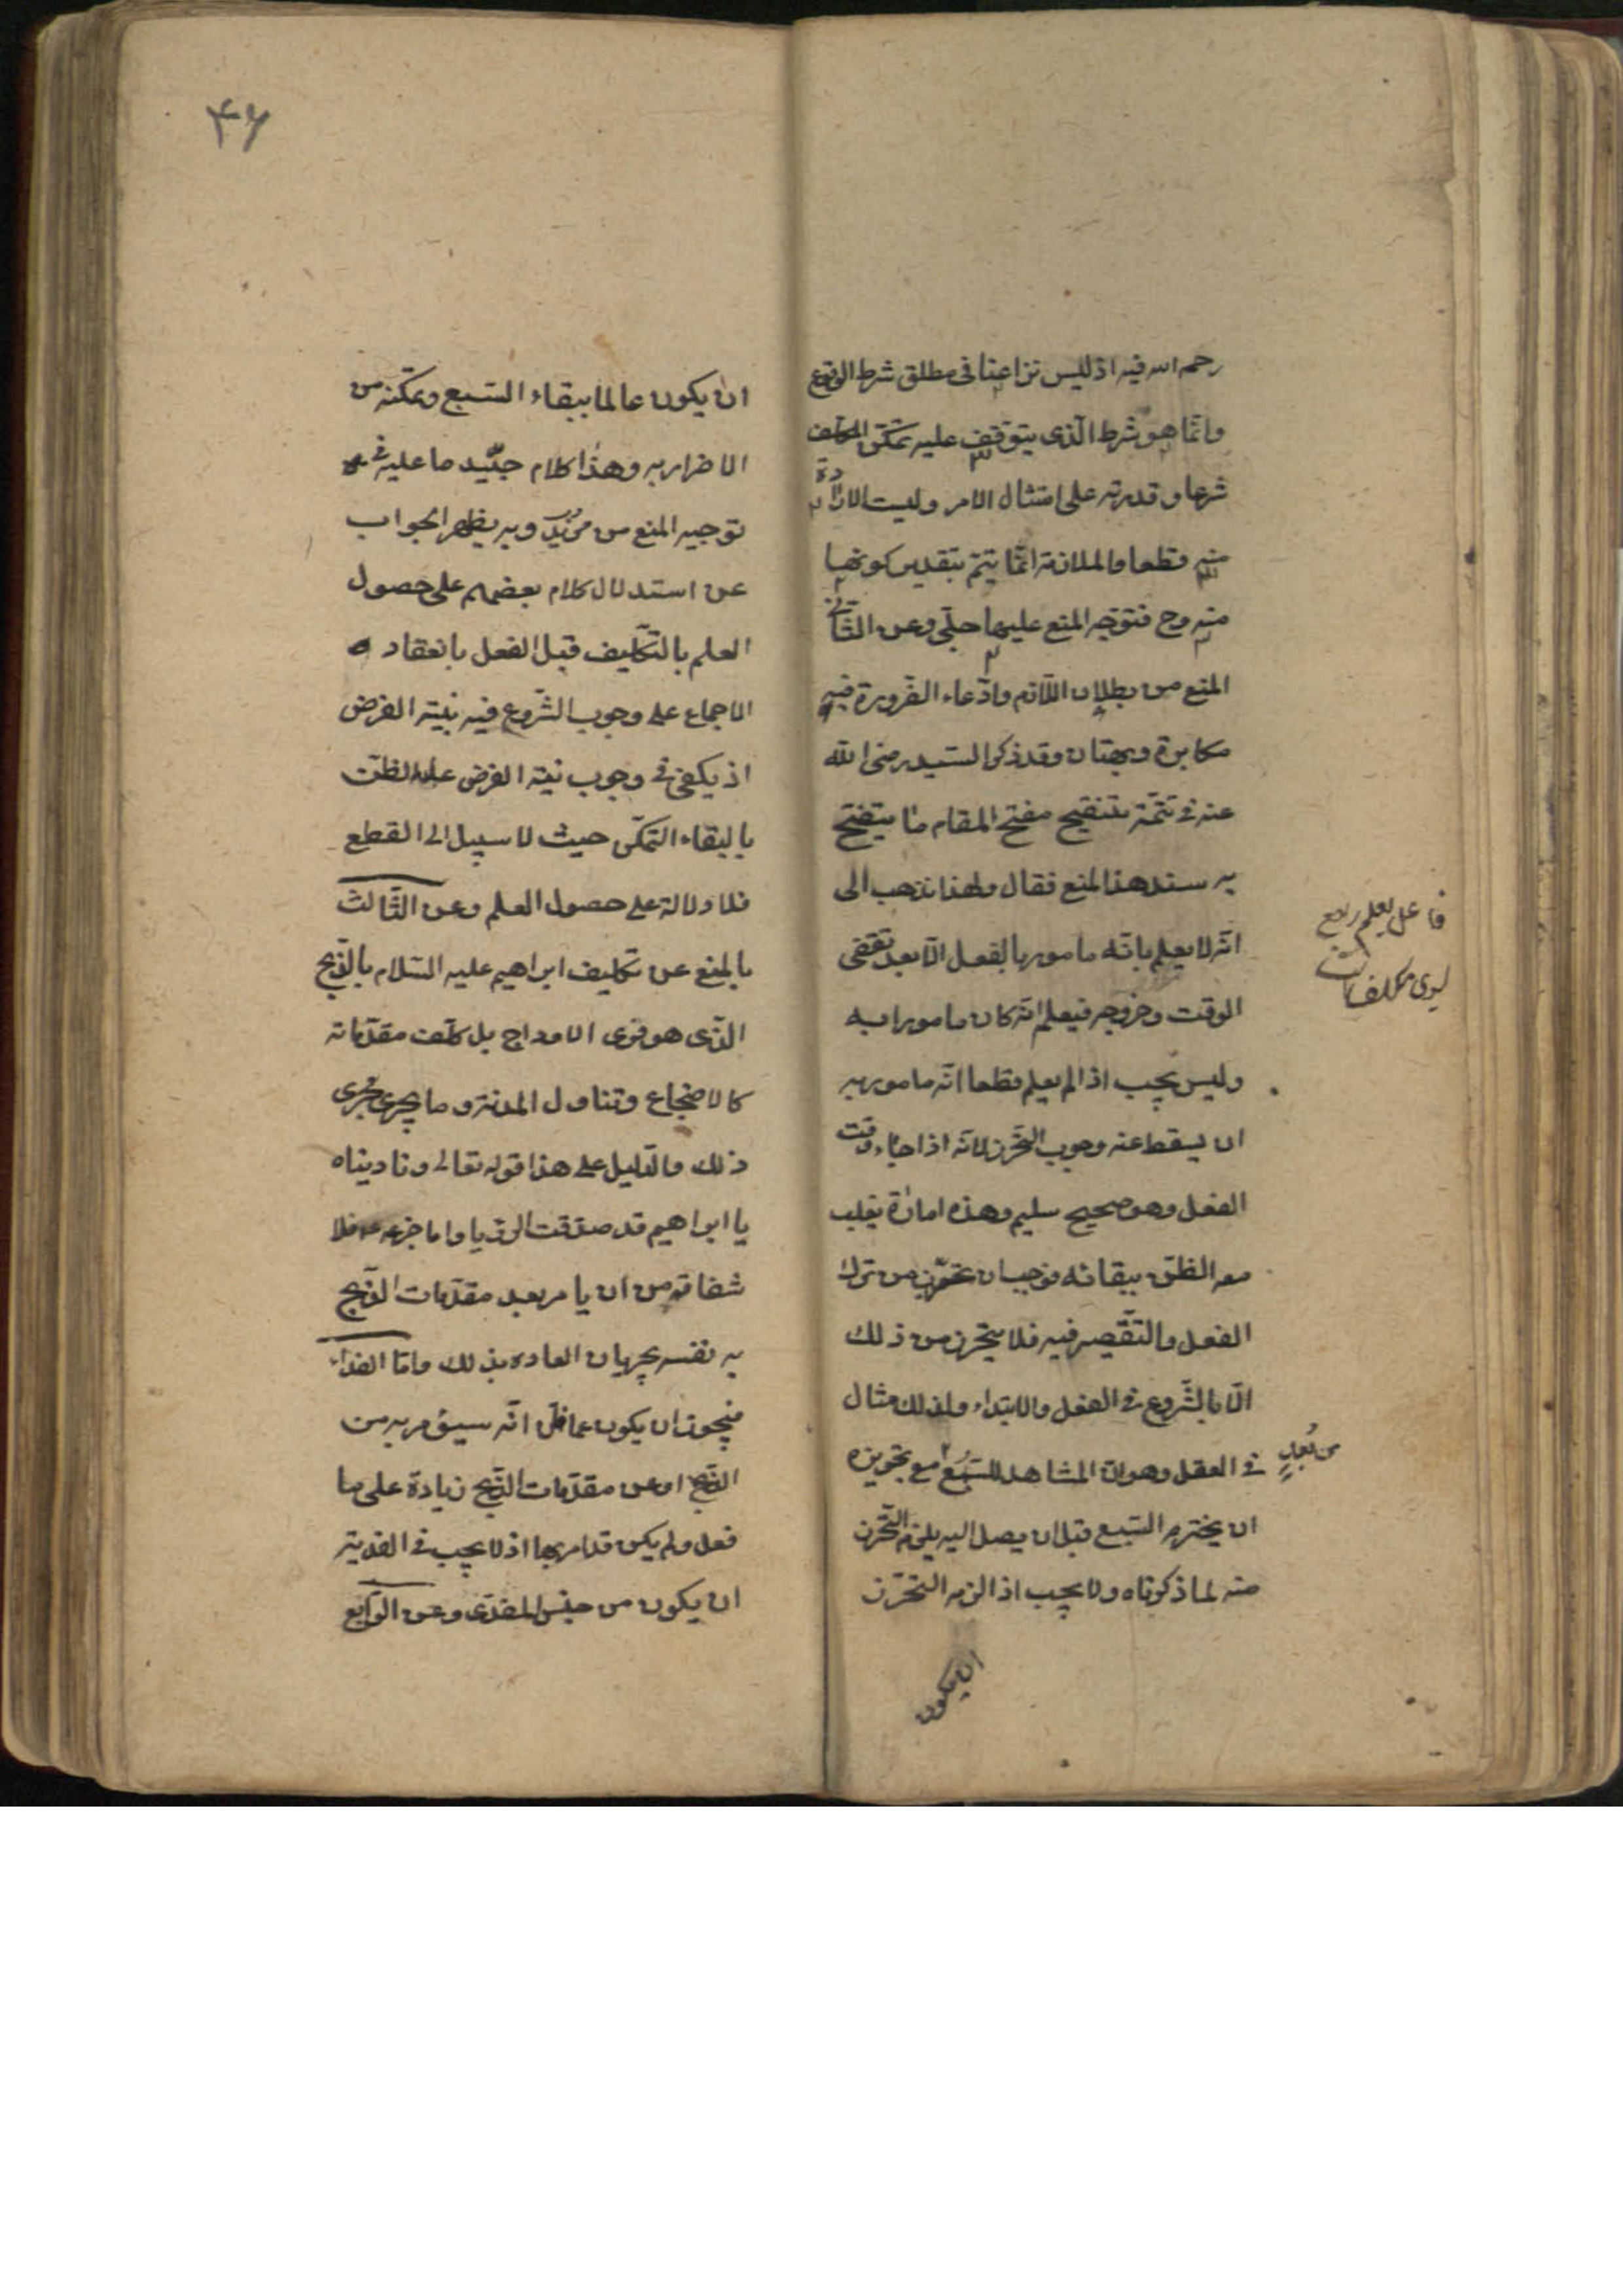 رحمه الله فيه اذ ليس نزاعنا فى مطلق شرط الوقوع
وانما هو شرط الذى يتوقف عليه تمكن المكلف
شرعا وقدرته على امتثال الامر وليست الارادة
منه قطعا والملازمة انما يتم بتقدير كونها
منه وح فتوجه المنع عليها جلى وعن الثانى
المنع من بطلان اللازم وادعاء الضرورة فيه
مكابرة وبهتان وقد ذكر السيد رضى الله
عنه فى تتمة تنقيح المقام ما يتضح
به سند هذا المنع فقال ولهذا نذهب الى
انه لا يعلم بانه مامور بالفعل الا بعد تقضى
الوقت وخروجه فيعلم انه كان مامورا به
وليس يجب اذا لم يعلم قطعا انه مامور به
ان يسقط عنه وجوب التحرز لانه اذا جاء وقت
الفعل وهو صحيح سليم وهذه امارة يغلب
معه الظن ببقائه فوجب ان يتحرز من ترك
الفعل والتقصير فيه فلا يتحرز من ذلك
الا بالشروع فى الفعل والابتداء ولذلك مثال
فى العقل وهو ان المشاهد للسبع من بعد مع تجويزه
ان يخترم السبع قبل ان يصل اليه يلزم التحرز
منه لما ذكرناه ولا يجب اذا لزمه التحرز
ان يكون
فاعل يعلم راجع
مكلف
۴۶
ان يكون عالما ببقاء السبع وتمكنه من
الاضرار به وهذا كلام جيد ما عليه فى
توجيه المنع من مزيد وبه يظهر الجواب
عن استدلال كلام بعضهم على حصول
العلم بالتكليف قبل الفعل بانعقاد
الاجماع على وجوب الشروع فيه بنية الفرض
اذ يكفى فى وجوب نية الفرض غلبة الظن
بالبقاء التمكن حيث لا سبيل الى القطع
فلا دلالة على حصول العلم وعن الثالث
بالمنع عن تكليف ابراهيم عليه السلام بالذبح
الذى هو فرى الاوداج بل كلف مقدماته
كالاضجاع وتناول المدية وما يجرى مجرى
ذلك والدليل على هذا قوله تعالى وناديناه
يا ابراهيم قد صدقت الرؤيا واما جزعه فلا
شفاقه من ان يامر بعد مقدمات الذبح
به نفسه بجريان العادة بذلك واما الفداء
فيجوز ان يكون عما ظن انه سيؤمر به من
الذبح او عن مقدمات الذبح زيادة على ما
فعل ولم يكن قد امر بها اذ لا يجب فى الفدية
ان يكون من جنس المفدى وعن الرابع